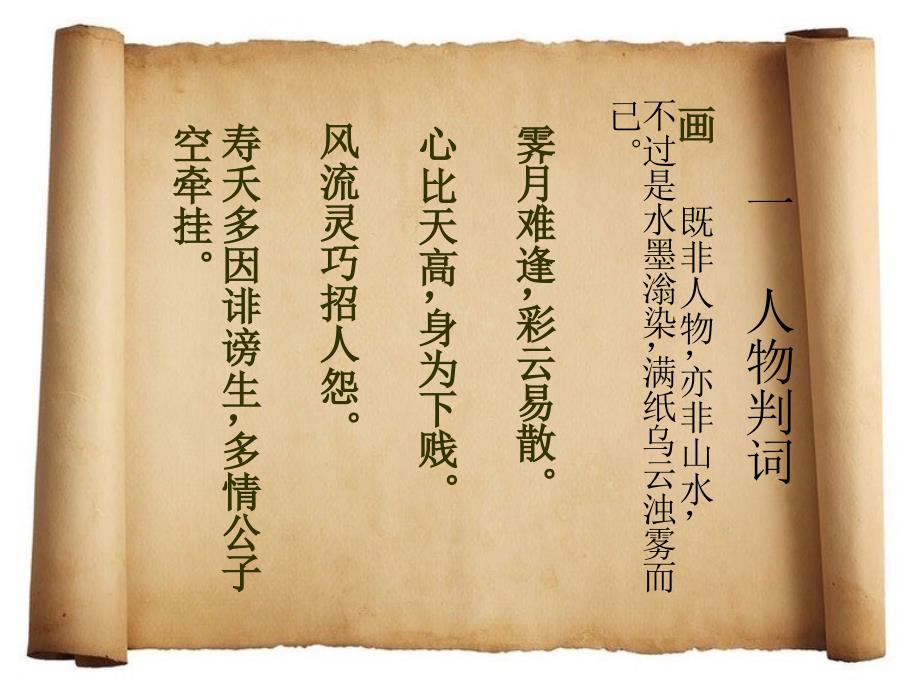 一 人物判词
画 既非人物,亦非山水,
不过是水墨滃染,满纸乌云浊雾而
已。
霁月难逢,彩云易散。
心比天高,身为下贱。
风流灵巧招人怨。
寿夭多因诽谤生,多情公子
空牵挂。